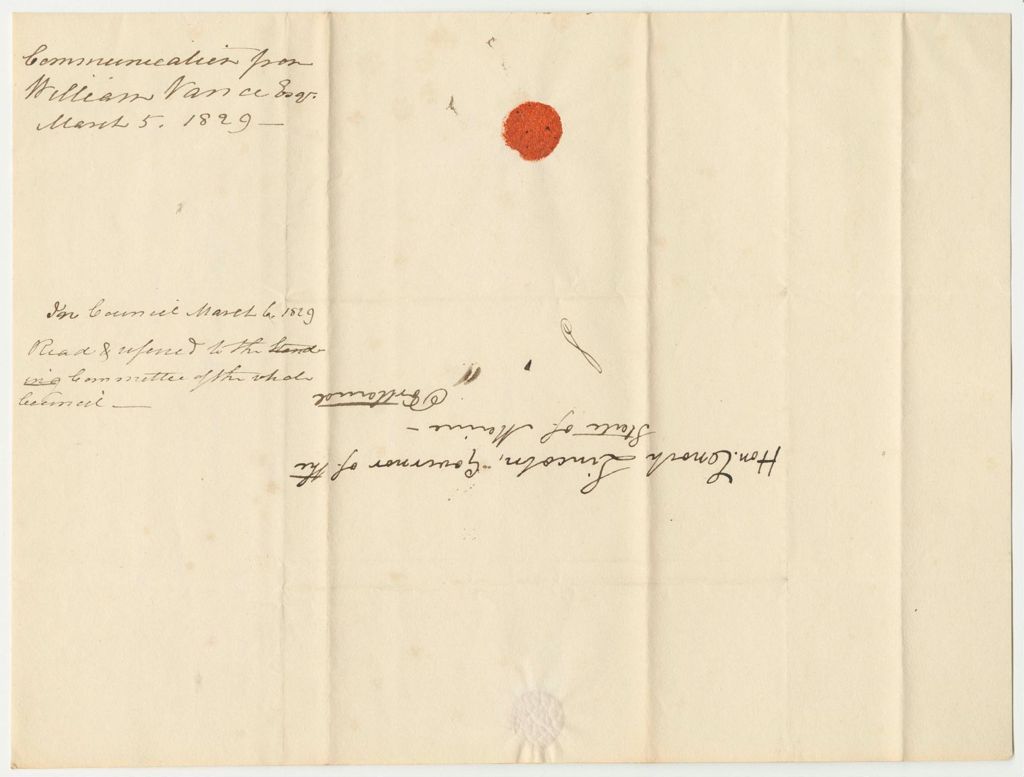 Communication from
William Vance Esqr.
March 5. 1829 —
In Council March 6, 1829
Read & referred to the Stand
ing Committee of the whole
Council —
Hon. Enoch Lincoln, Governor of the
State of Maine —
Portland